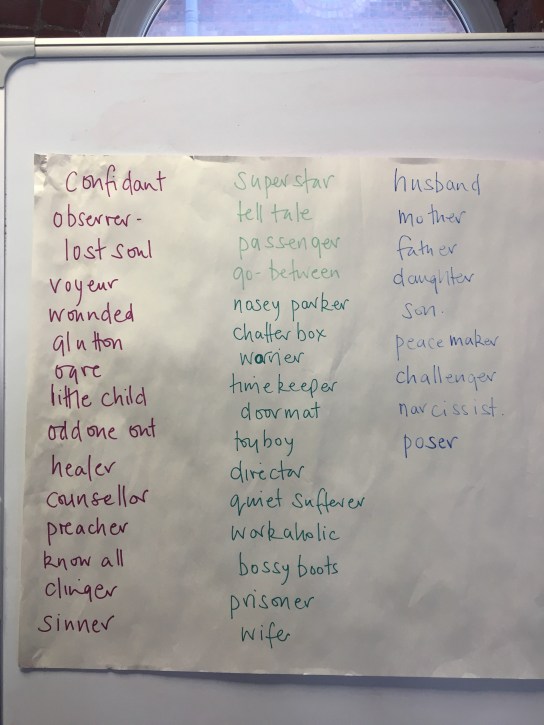 Confidant
observer-
lost soul
voyeur
wounded
glutton
ogre
little child
odd one out
healer
counsellor
preacher
know all
clinger
sinner
superstar
tell tale
passenger
go-between
nosey parker
chatter box
worrier
timekeeper
doormat
toyboy
director
quiet sufferer
workaholic
bossy boots
prisoner
wife
husband
mother
father
daughter
son.
peace maker
challenger
narcissist.
poser